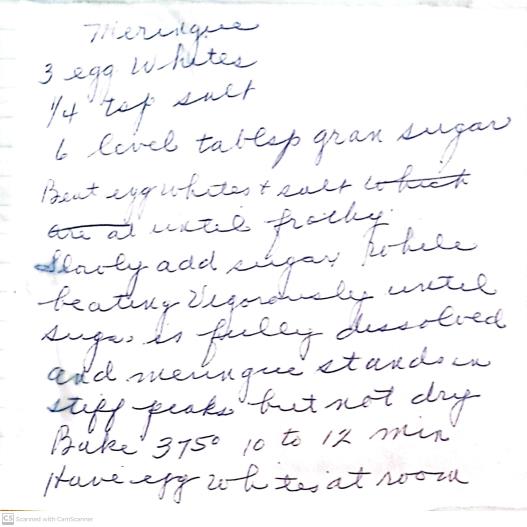 Meringue
3 egg Whites
1/4 tsp salt
6 level tablsp gran sugar
Beat egg whites + salt which
are at until frothy.
Slowly add sugar while
beating Vigorously until
sugar is fully dissolved
and meringue stands in
stiff peaks but not dry
Bake 375° 10 to 12 min
Have egg whites at room
CS Scanned with CamScanner